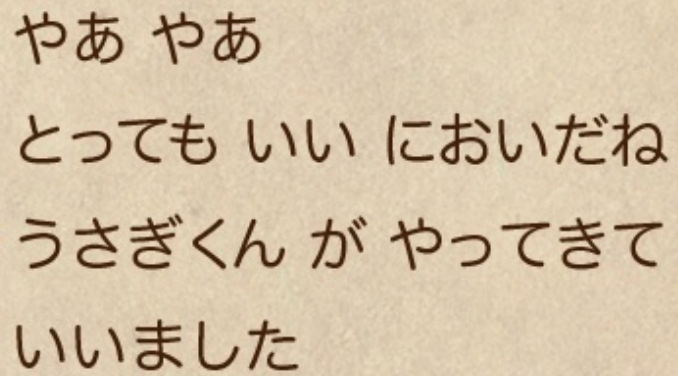 やあ やあ
とっても いい においだね
うさぎくん が やってきて
いいました